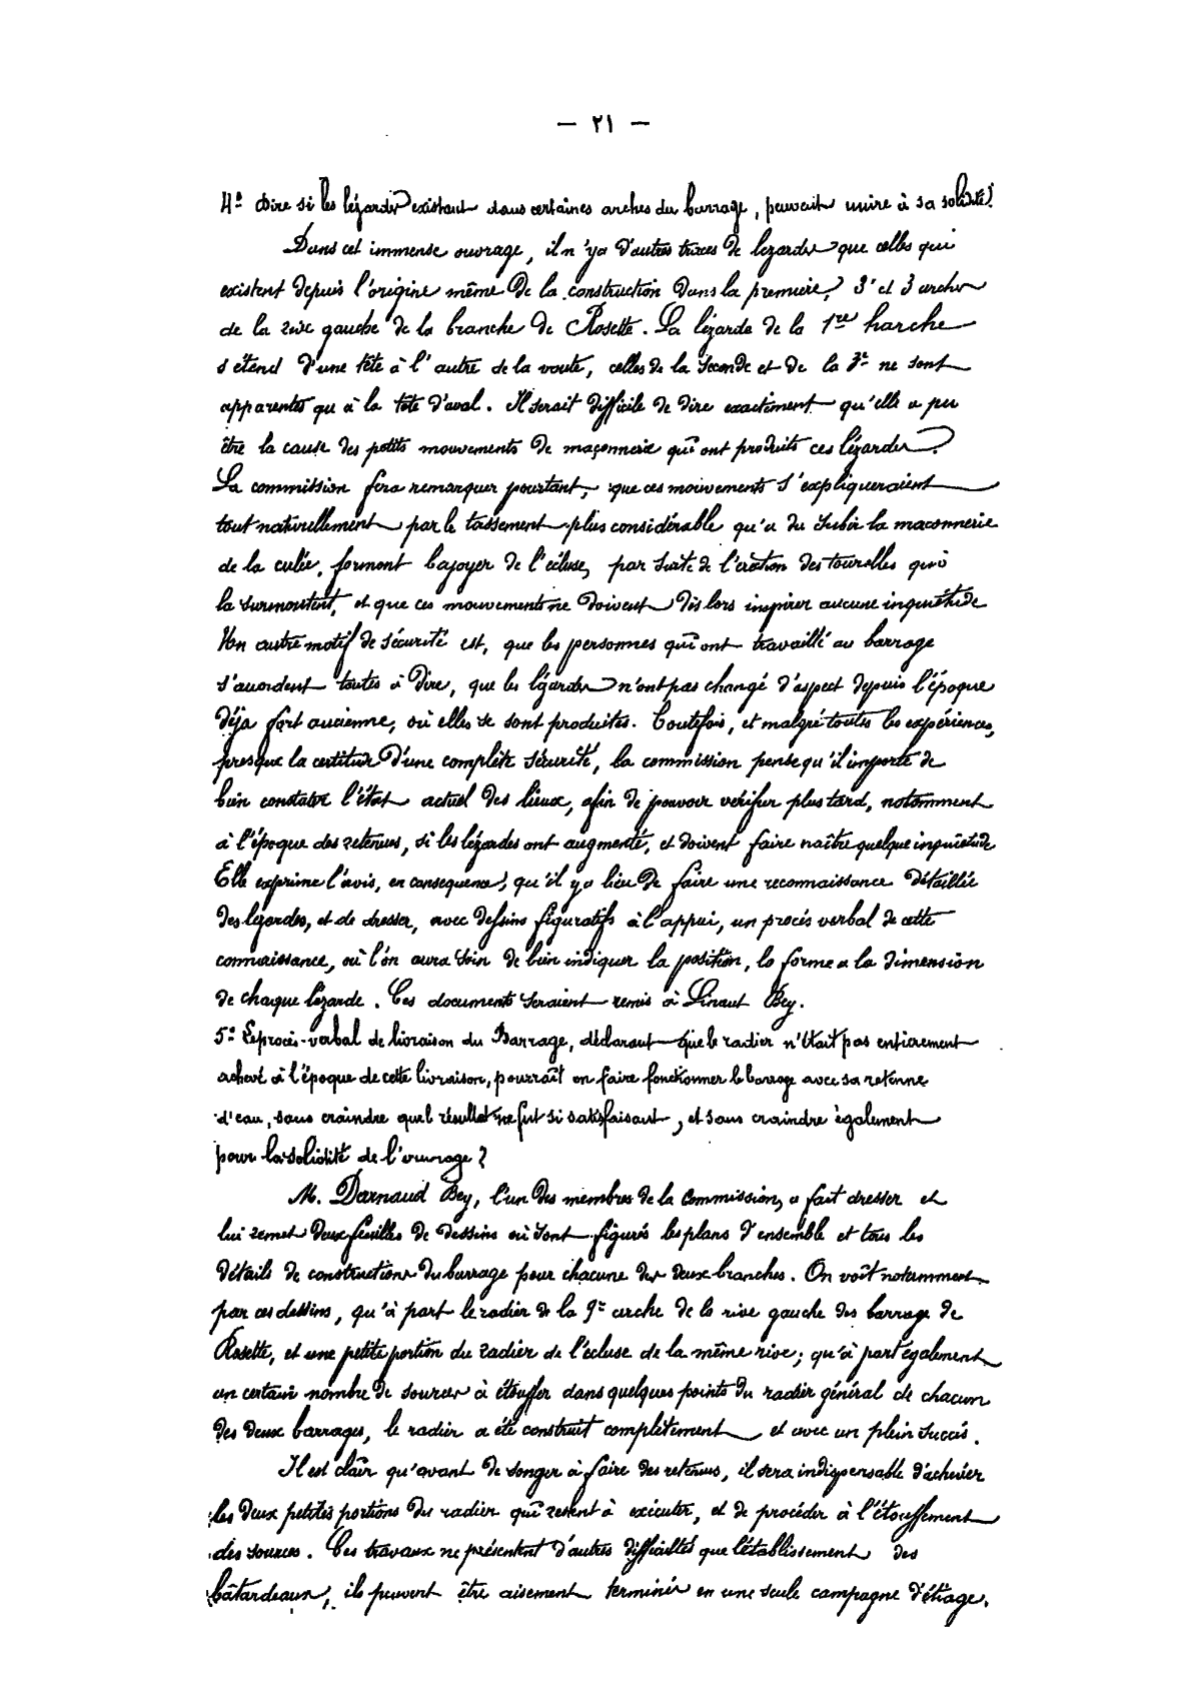 — ٢١ —
4º Dire si les lézardes existant dans certaines arches du barrage, peuvait nuire à sa solidité?
Dans cet immense ouvrage, il n'ya d'autres traces de lezardes que celles qui
existent depuis l'origine même de la construction dans la première, 3' et 3 arches
de la rive gauche de la branche de Rosette. La lézarde de la 1re harche
s'étend d'une tête à l'autre de la voute, celles de la seconde et de la 3e ne sont
apparentes qu'à la tête d'aval. Il serait difficile de dire exactement qu'elle a pu
être la cause des petits mouvements de maçonnerie qui ont produits ces lézardes?
La commission fera remarquer pourtant, que ces mouvements s'expliqueraient
tout naturellement par le tassement plus considérable qu'a du subir la maconnerie
de la culée, formant bajoyer de l'écluse, par suite de l'création des tourelles qui
la surmontent, et que ces mouvements ne doivent dès lors inspirer aucune inquiétude
Un autre motif de sécurité est, que les personnes qui ont travaillé au barrage
s'accordent toutes à dire, que les lézardes n'ont pas changé d'aspect depuis l'époque
déja fort ancienne, où elles se sont produites. Toutefois, et malgré toutes les expériences,
presque la certitude d'une complète sécurité, la commission pense qu'il importe de
bien constater l'état actuel des lieux, afin de pouvoir vérifier plus tard, notamment
à l'époque des retenues, si les lézardes ont augmenté, et doivent faire naître quelque inquiétude
Elle exprime l'avis, en consequence, qu'il y a lieu de faire une reconnaissance détaillée
des lezardes, et de dresser, avec dessins figuratifs à l'appui, un procès verbal de cette
connaissance, où l'on aura soin de bien indiquer la position, la forme a la dimension
de chaque lézarde. Ces documents seraient remis à Linant Bey.
5º Le procès-verbal de livraison du Barrage, déclarant que le radier n'était pas entierement
achevé à l'époque de cette livraison, pourraît on faire fonctionner le barrage avec sa retenue
d'eau, sans craindre que le résultat ne fut si satisfaisant, et sans craindre également
pour la solidité de l'ouvrage?
M. Darnaud Bey, l'un des membres de la Commission, a fait dresser et
lui remet deux feuilles de dessins où sont figurés les plans d'ensemble et tous les
détails de constructions du barrage pour chacune des deux branches. On voît notamment
par ces dessins, qu'à part le radier de la 9e arche de la rive gauche des barrage de
Rosette, et une petite portion du radier de l'écluse de la même rive; qu'à part également
un certain nombre de sources à étouffer dans quelques points du radier général de chacun
des deux barrages, le radier a été construit complètement et avec un plein succès.
Il est clair qu'avant de songer à faire des retenus, il sera indispensable d'achevier
les deux petites portions du radier qui restent à exécuter, et de procéder à l'étouffement
des sources. Ces travaux ne présentent d'autres difficultés que l'établissement des
bâtardeaux, ils peuvent être aisement terminés en une seule campagne d'étiage.